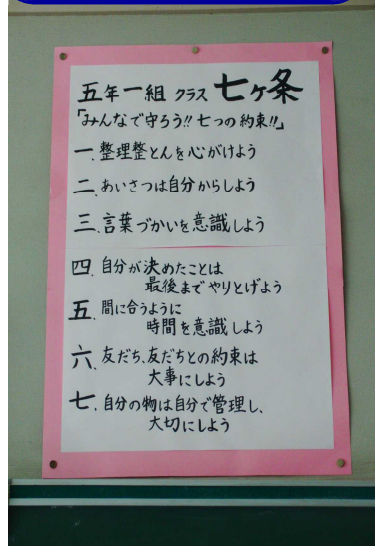 五年一組 クラス 七ヶ条
「みんなで守ろう!! 七つの約束!!」
一、整理整とんを心がけよう
二、あいさつは自分からしよう
三、言葉づかいを意識しよう
四、自分が決めたことは
最後までやりとげよう
五、間に合うように
時間を意識しよう
六、友だち、友だちとの約束は
大事にしよう
七、自分の物は自分で管理し、
大切にしよう